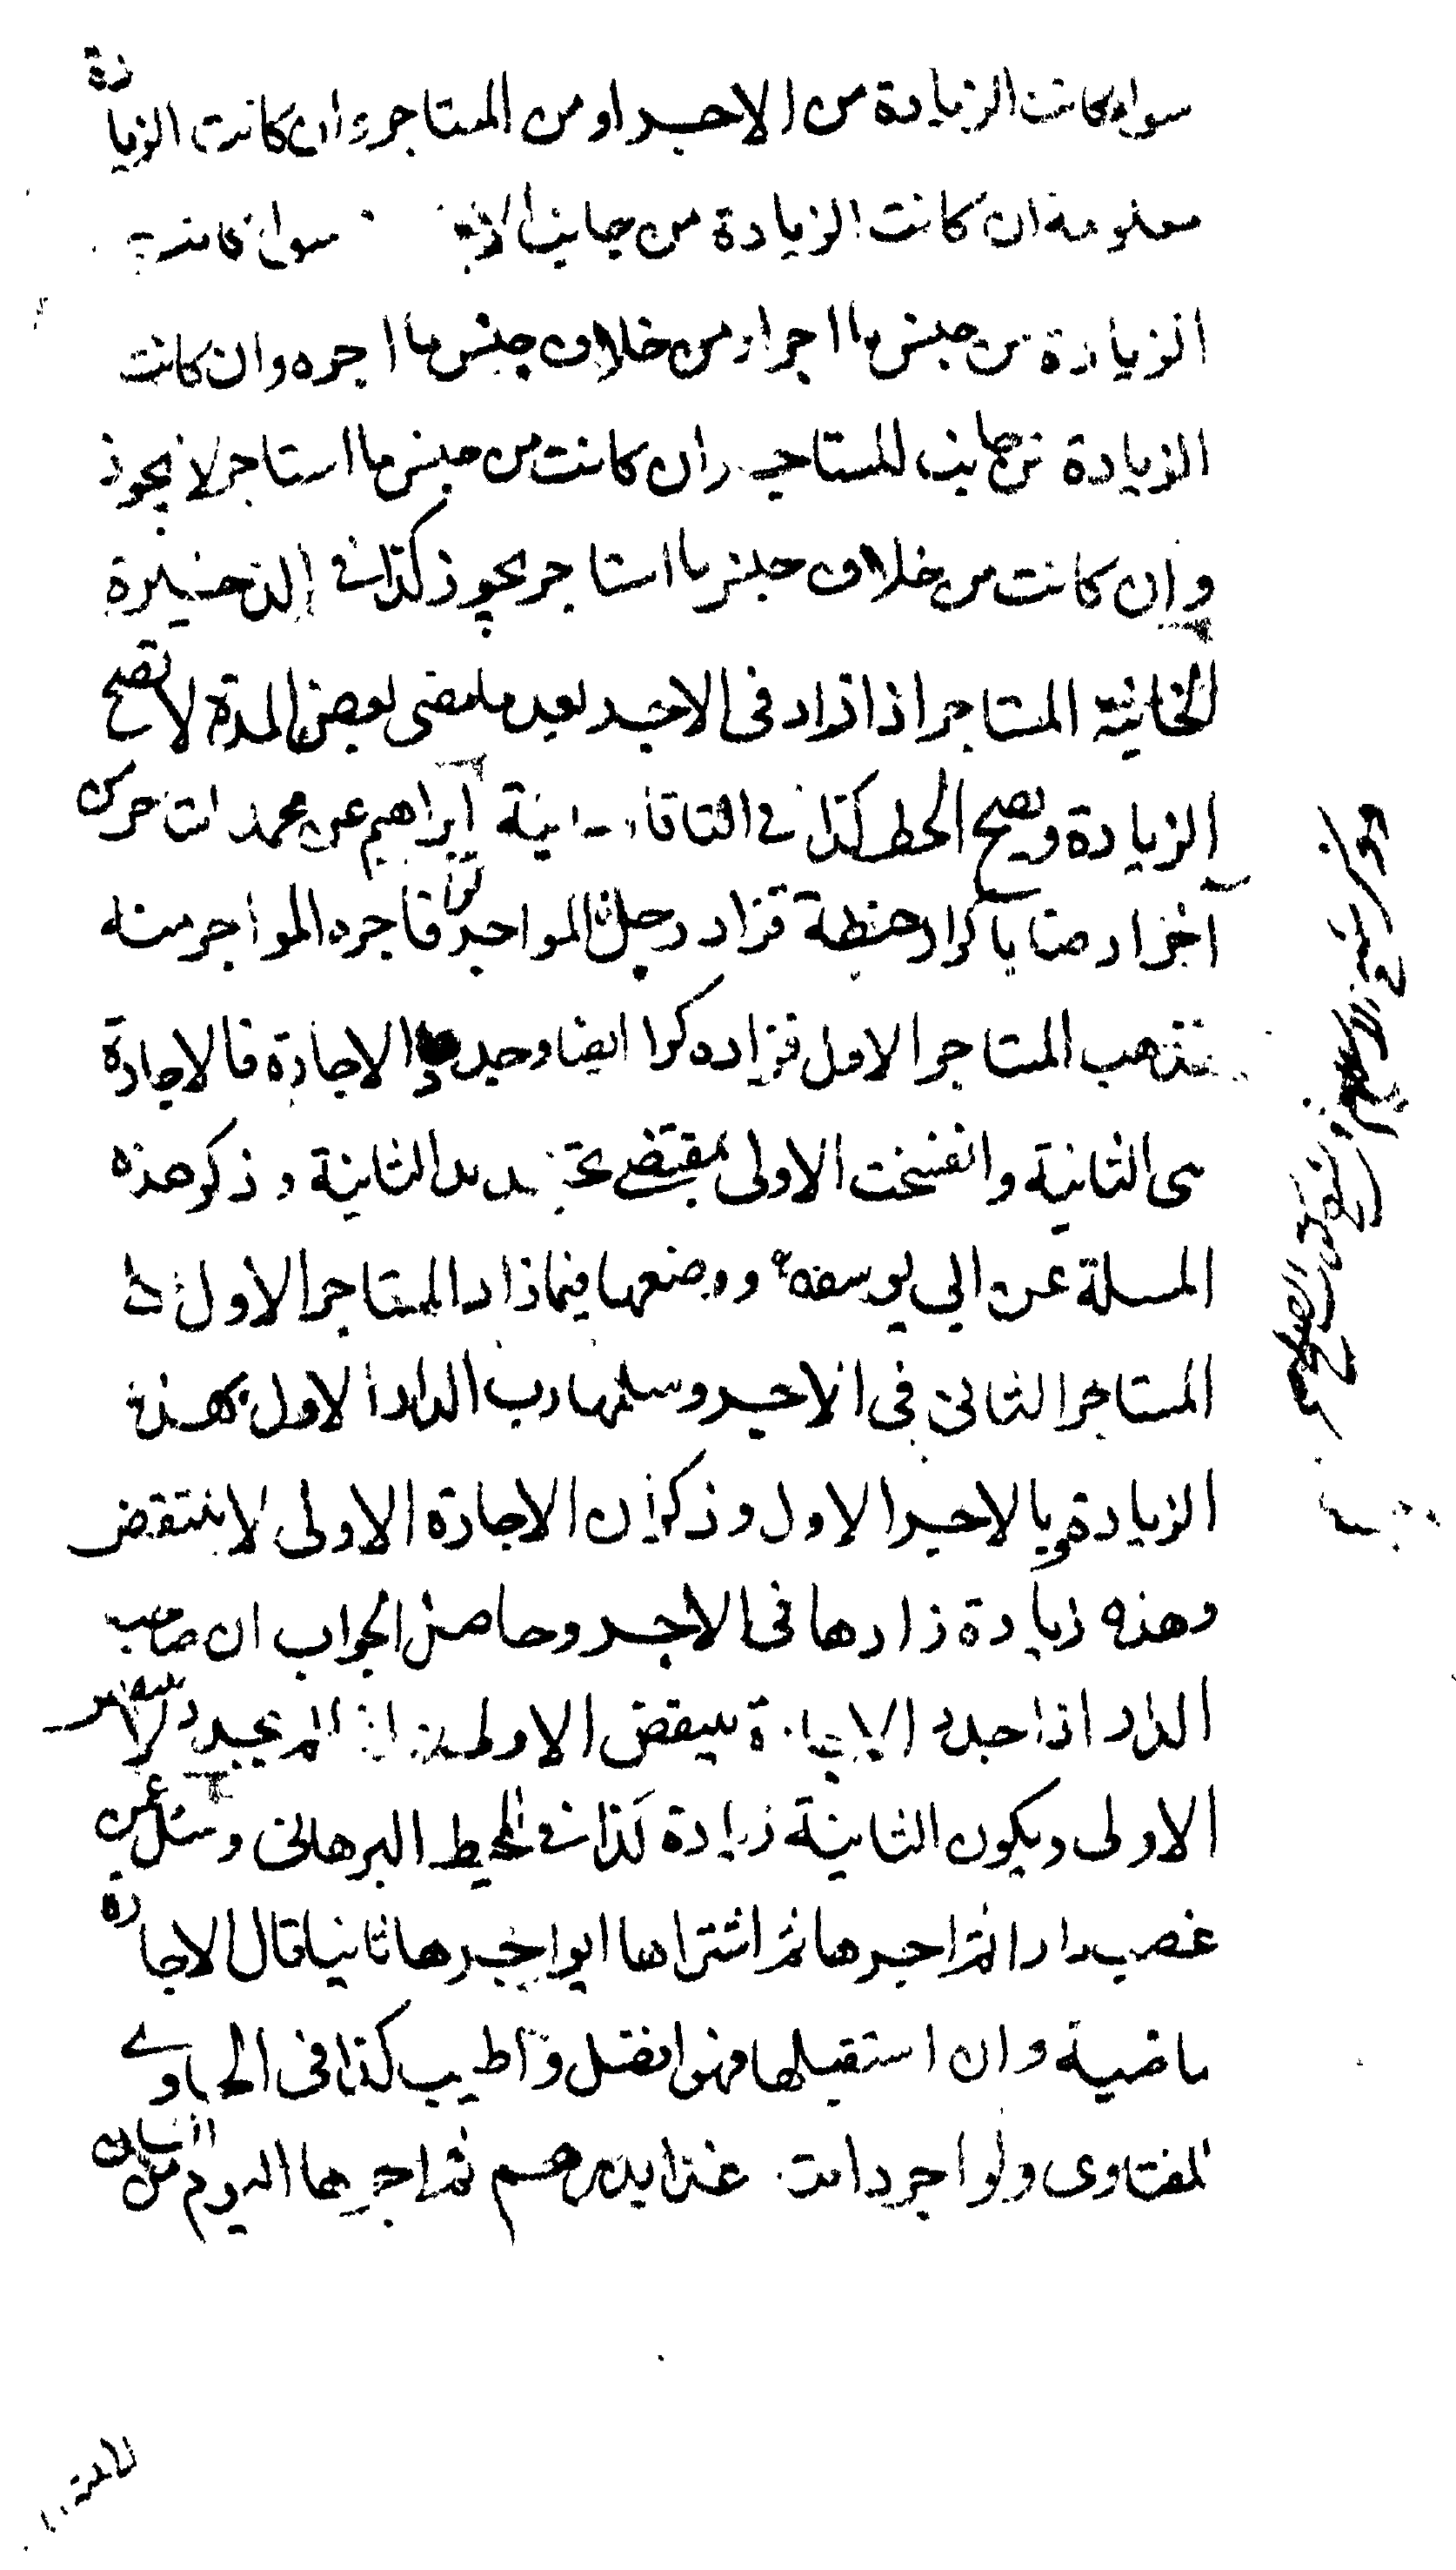 سواء كانت الزيادة من الاجر او من المستاجر وان كانت الزيادة
معلومة ان كانت الزيادة من جانب الاجر سواء كانت
الزيادة من جنس ما اجر او من خلاف جنس ما اجره وان كانت
الزيادة من جانب المستاجر ان كانت من جنس ما استاجر لا يجوز
وان كانت من خلاف جنس ما استاجر يجوز كذا في الذخيرة
الخانية المستاجر اذا زاد في الاجر بعد ما مضى بعض المدة لا تصح
الزيادة ويصح الحط كذا في التاتارخانية ابراهيم عن محمد استاجر من
آخر ارضا باكرار حنطة فزاد رجل المواجر كرا فاجره المواجر منه
فذهب المستاجر الاول فزاده كرا ايضا وجدد الاجارة فالاجارة
هى الثانية وانفسخت الاولى بمقتضى تجديد الثانية وذكر هذه
المسلة عن ابي يوسف ووضعها فيما زاد المستاجر الاول على
المستاجر الثاني في الاجر وسلمها رب الدار الاول بهذه
الزيادة وبالاجر الاول وذكر ان الاجارة الاولى لا ينتقض
وهذه زيادة زادها في الاجر وحاصل الجواب ان صاحب
الدار اذا جدد الاجارة ينتقض الاولى اذا لم يجدد لا ينتقض
الاولى ويكون الثانية زيادة كذا في المحيط البرهاني وسئل عمن
غصب دارا ثم اجرها ثم اشتراها ايواجرها ثانيا قال الاجارة
ماضية وان استقبلها فهو افضل واطيب كذا في الحاوي
للفتاوى ولو اجر دابته غدا بدرهم ثم اجرها اليوم من انسان